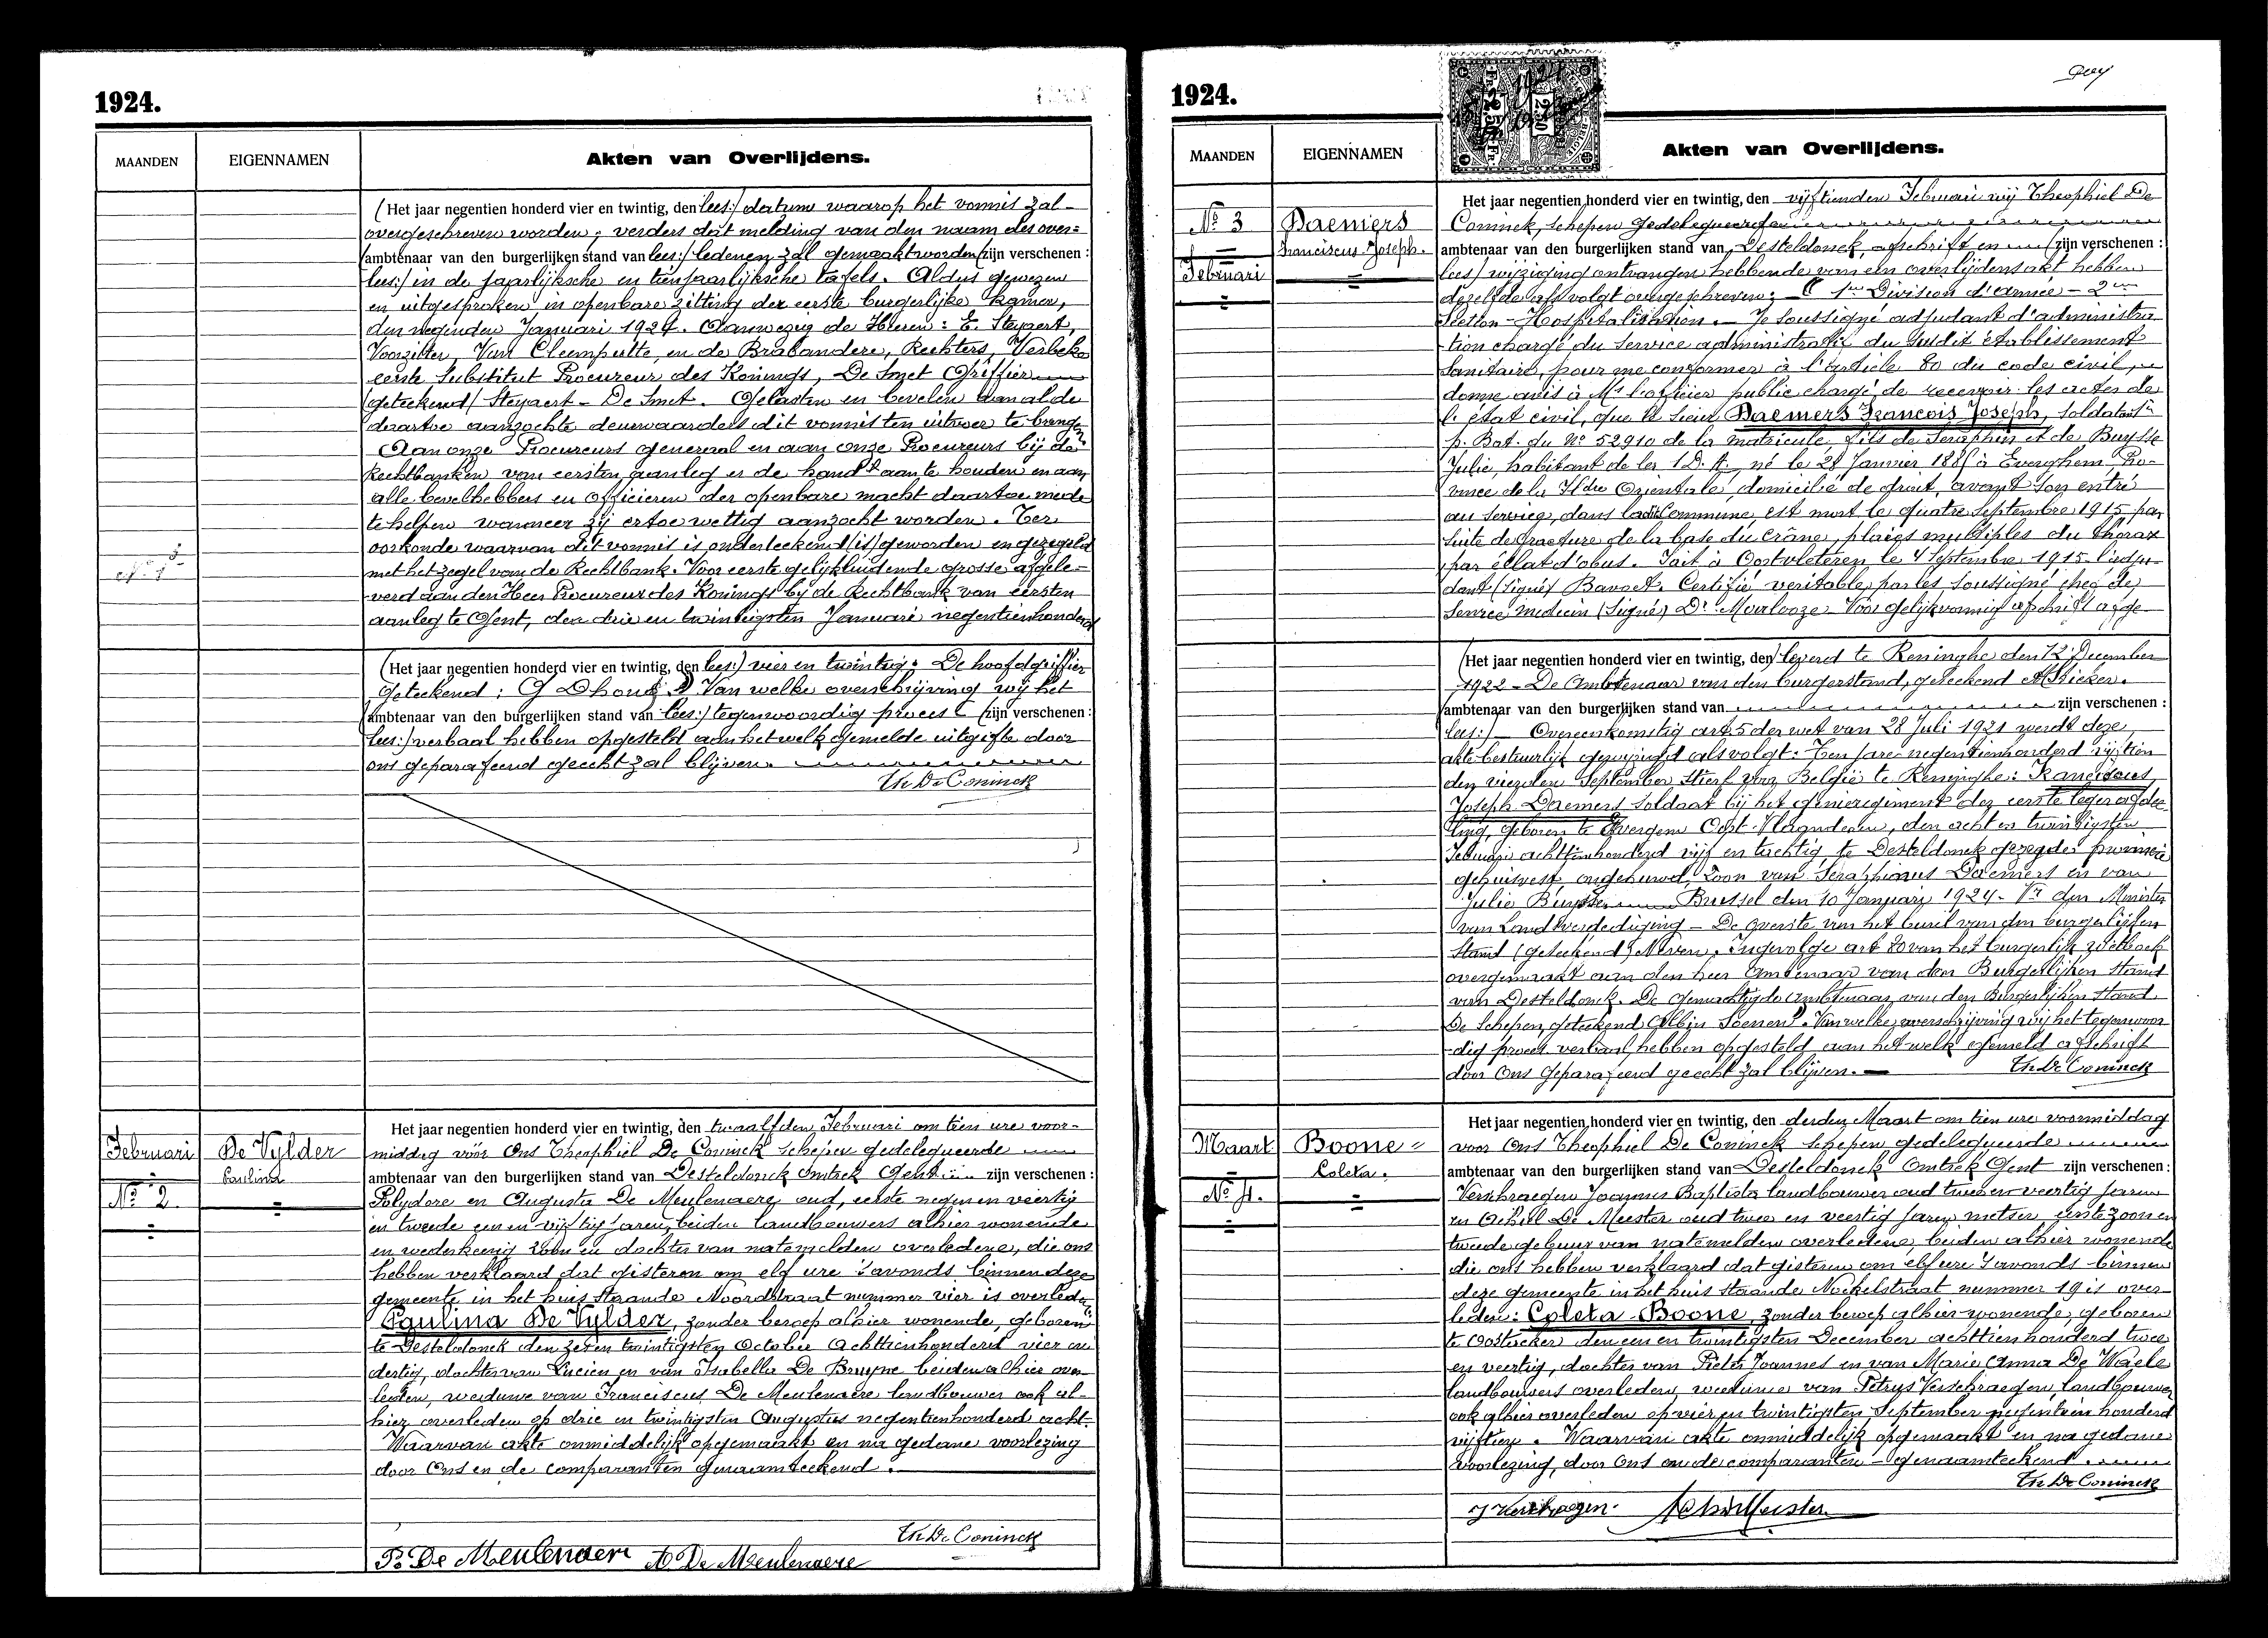 1924.
MAANDEN
EIGENNAMEN
Akten van Overlijdens.
(Het jaar negentien honderd vier en twintig, den lees:) datum waarop het vonnis zal
overgeschreven worden; verders dat melding van den naam des over=
(ambtenaar van den burgerlijken stand van lees:) ledenen zal gemaakt worden (zijn verschenen:
lees:) in de jaarlijksche en tienjaarlijksche tafels. Aldus gewezen
en uitgesproken in openbare zitting der eerste burgerlijke kamer,
den negenden Januari 1924. Aanwezig de Heeren: E. Steyaert,
Voorzitter, Van Cleemputte, en de Brabandere, Rechters, Verbeke
eerste Substituut Procureur des Konings, De Smet Griffier
(geteekend) Steyaert - De Smet. Gelasten en bevelen aan alde
daartoe aanzochte deurwaarders dit vonnis ten uitvoer te brengen
Aan onze Procureurs generaal en aan onze Procureurs bij de
Rechtbanken van eersten aanleg er de hand aan te houden en aan
alle bevelhebbers en officieren der openbare macht daartoe mede
te helpen wanneer zij ertoe wettig aanzocht worden. Ter
oorkonde waarvan dit vonnis is onderteekend (is) geworden en gezegeld
met het zegel van de Rechtbank. Voor eerste gelijkluidende grosse afgele=
verd aan den Heer Procureur des Konings bij de Rechtbank van eersten
aanleg te Gent, den drie en twintigsten Januari negentienhonderd
(Het jaar negentien honderd vier en twintig, den lees:) vier en twintig. De hoofdgriffier
geteekend: G Dhondt Van welke overschrijving wij het
(ambtenaar van den burgerlijken stand van lees:) tegenwoordig proces (zijn verschenen:
lees:) verbaal hebben opgesteld aan hetwelk gemelde uitgifte door
ons geparafeerd gehecht zal blijven.
Th De Coninck
Februari
De Vylder
Paulina
No 2.
Het jaar negentien honderd vier en twintig, den twaalfden Februari om tien ure voor-
middag vóór Ons Theophiel De Coninck schepen gedelegueerde
ambtenaar van den burgerlijken stand van Desteldonck Omtrek Gent zijn verschenen:
Polydore en Augusta De Meulenaere oud, eerste negen en veertig
en tweede een en vijftig jaren, beiden landbouwers alhier wonende
en wederkeerig zoon en dochter van natemelden overledene, die ons
hebben verklaard dat gisteren om elf ure 's avonds binnen deze
gemeente in het huis staande Noordstraat nummer vier is overleden
Paulina De Vylder, zonder beroep alhier wonende, geboren
te Desteldonck den zeven twintigsten October achttienhonderd vier en
dertig, dochter van Lucien en van Isabella De Bruyne beiden alhier over-
leden, weduwe van Franciscus De Meulenaere landbouwer ook al-
hier overleden op drie en twintigsten Augustus negentienhonderd acht.
Waarvan akte onmiddelijk opgemaakt en na gedane voorlezing
door Ons en de comparanten genaamteekend.
Th De Coninck
P. De Meulenaere A De Meulenaere
1924.
MAANDEN
EIGENNAMEN
Akten van Overlijdens.
No 3
Daemers
Franciscus Joseph.
Februari
Het jaar negentien honderd vier en twintig, den vijftienden Februari wij Theophiel De
Coninck, schepen gedelegueerde
ambtenaar van den burgerlijken stand van Desteldonck, afschrift en (zijn verschenen:
lees) wijziging ontvangen hebbende van een overlijdensakt hebben
dezelfde als volgt overgeschreven: 1re Division d'armée - 2me
Section - Hospitalisation. - Je soussigné adjudant d'administra
tion chargé du Service administratif du susdit établissement
Sanitaire, pour me conformer à l'Article 80 du code civil,
donne avis à Mr l'officier public chargé de recevoir les actes de
l'état civil, que le sieur Daemers Francois Joseph, soldat
p. Bat. du No 52910 de la matricule, fils de Seraphin et de Buysse
Julie, habitant de la 1 D.A. né le 28 Janvier 1885 à Everghem, Pro-
vince de la Fldre Orientale, domicilié de droit, avant son entré
au service, dans ladite Commune, est mort le quatre Septembre 1915 par
suite de fracture de la base du crâne, plaies multiples du thorax
par éclat d'obus. Fait à Oostvleteren le 4 Septembre 1915. l'adju-
dant (signé) Bavoet. Certifié veritable par les soussigné chef de
Service medecin (Signé) Dr Moulooze Voor gelijkvormig afschrift afge
(Het jaar negentien honderd vier en twintig, den) leverd te Reninghe den 12 December
1922 - De Ambtenaar van den burgerstand, geteekend
(ambtenaar van den burgerlijken stand van zijn verschenen:
lees:) Overeenkomstig art 5 der wet van 28 Juli 1921 werdt deze
akte bestuurlijk gewijzigd als volgt: Ten jare negentienhonderd vijftien
den vierden September stierf voor België te Reninghe: Franciscus
Joseph Daemers soldaat bij het genieregiment der eerste legerafdee-
ling, geboren te Evergem Oost-Vlaanderen, den acht en twintigsten
Januari achttienhonderd vijf en tachtig te Desteldonck gezegde provincie
gehuisvest, ongehuwd, zoon van Seraphinus Daemers en van
Julie Buysse Brussel den 10 Januari 1924. Vr den Minister
van Landsverdediging - De overste van het bureel van den burgerlijken
Stand (geteekend) Ingevolge art 80 van het burgerlijk wetboek
overgemaakt aan den heer Ambtenaar van den Burgerlijken stand
van Desteldonck. De gemachtigde Ambtenaar van den Burgerlijken stand
De Schepen, geteekend Albin Soenens. Van welke overschrijving wij het tegenwoor
-dig proces verbaal hebben opgesteld aan het welk gemeld afschrift
door Ons geparafeerd gehecht zal blijven.
Th De Coninck
Maart
Boone
Coleta.
No 4.
Het jaar negentien honderd vier en twintig, den derden Maart om tien ure voormiddag
voor Ons Theophiel De Coninck schepen gedelegueerde
ambtenaar van den burgerlijken stand van Desteldonck Omtrek Gent zijn verschenen:
Verschraegen Joannes Baptista landbouwer oud twee en veertig jaren
en Achiel De Meester oud twee en veertig jaren metser eerste zoon en
tweede gebuur van natemelden overledene, beiden alhier wonende
die ons hebben verklaard dat gisteren om elf ure 's avonds binnen
deze gemeente in het huis staande Nockelstraat nummer 19 is over-
leden: Coleta Boone, zonder beroep alhier wonende, geboren
te Oostacker den een en twintigsten December achttienhonderd twee
en veertig, dochter van Pieter Joannes en van Marie Anna De Waele
landbouwers overleden, weduwe van Petrus Verschraegen, landbouwer
ook alhier overleden op vier en twintigsten September negentien honderd
vijftien. Waarvan akte onmiddelijk opgemaakt en na gedane
voorlezing, door Ons en de comparanten genaamteekend.
Th De Coninck
J Verschraegen. Ach De Meester